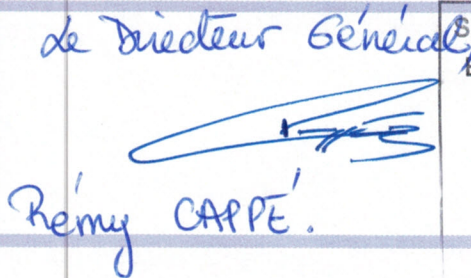 Le Directeur Général
Rémy CAPPÉ.